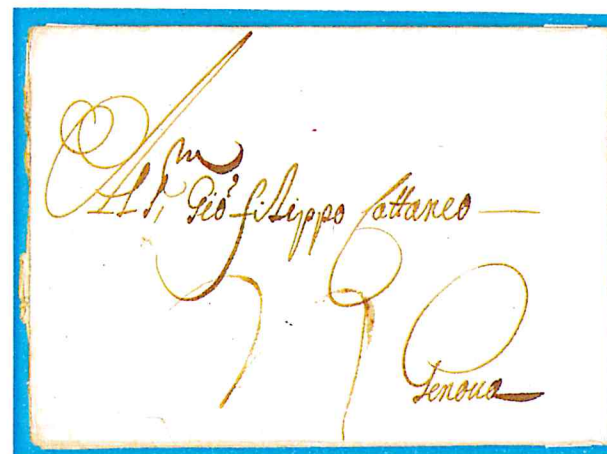 All Ill.mo Sr. Gio: filippo Cattaneo
Genoua